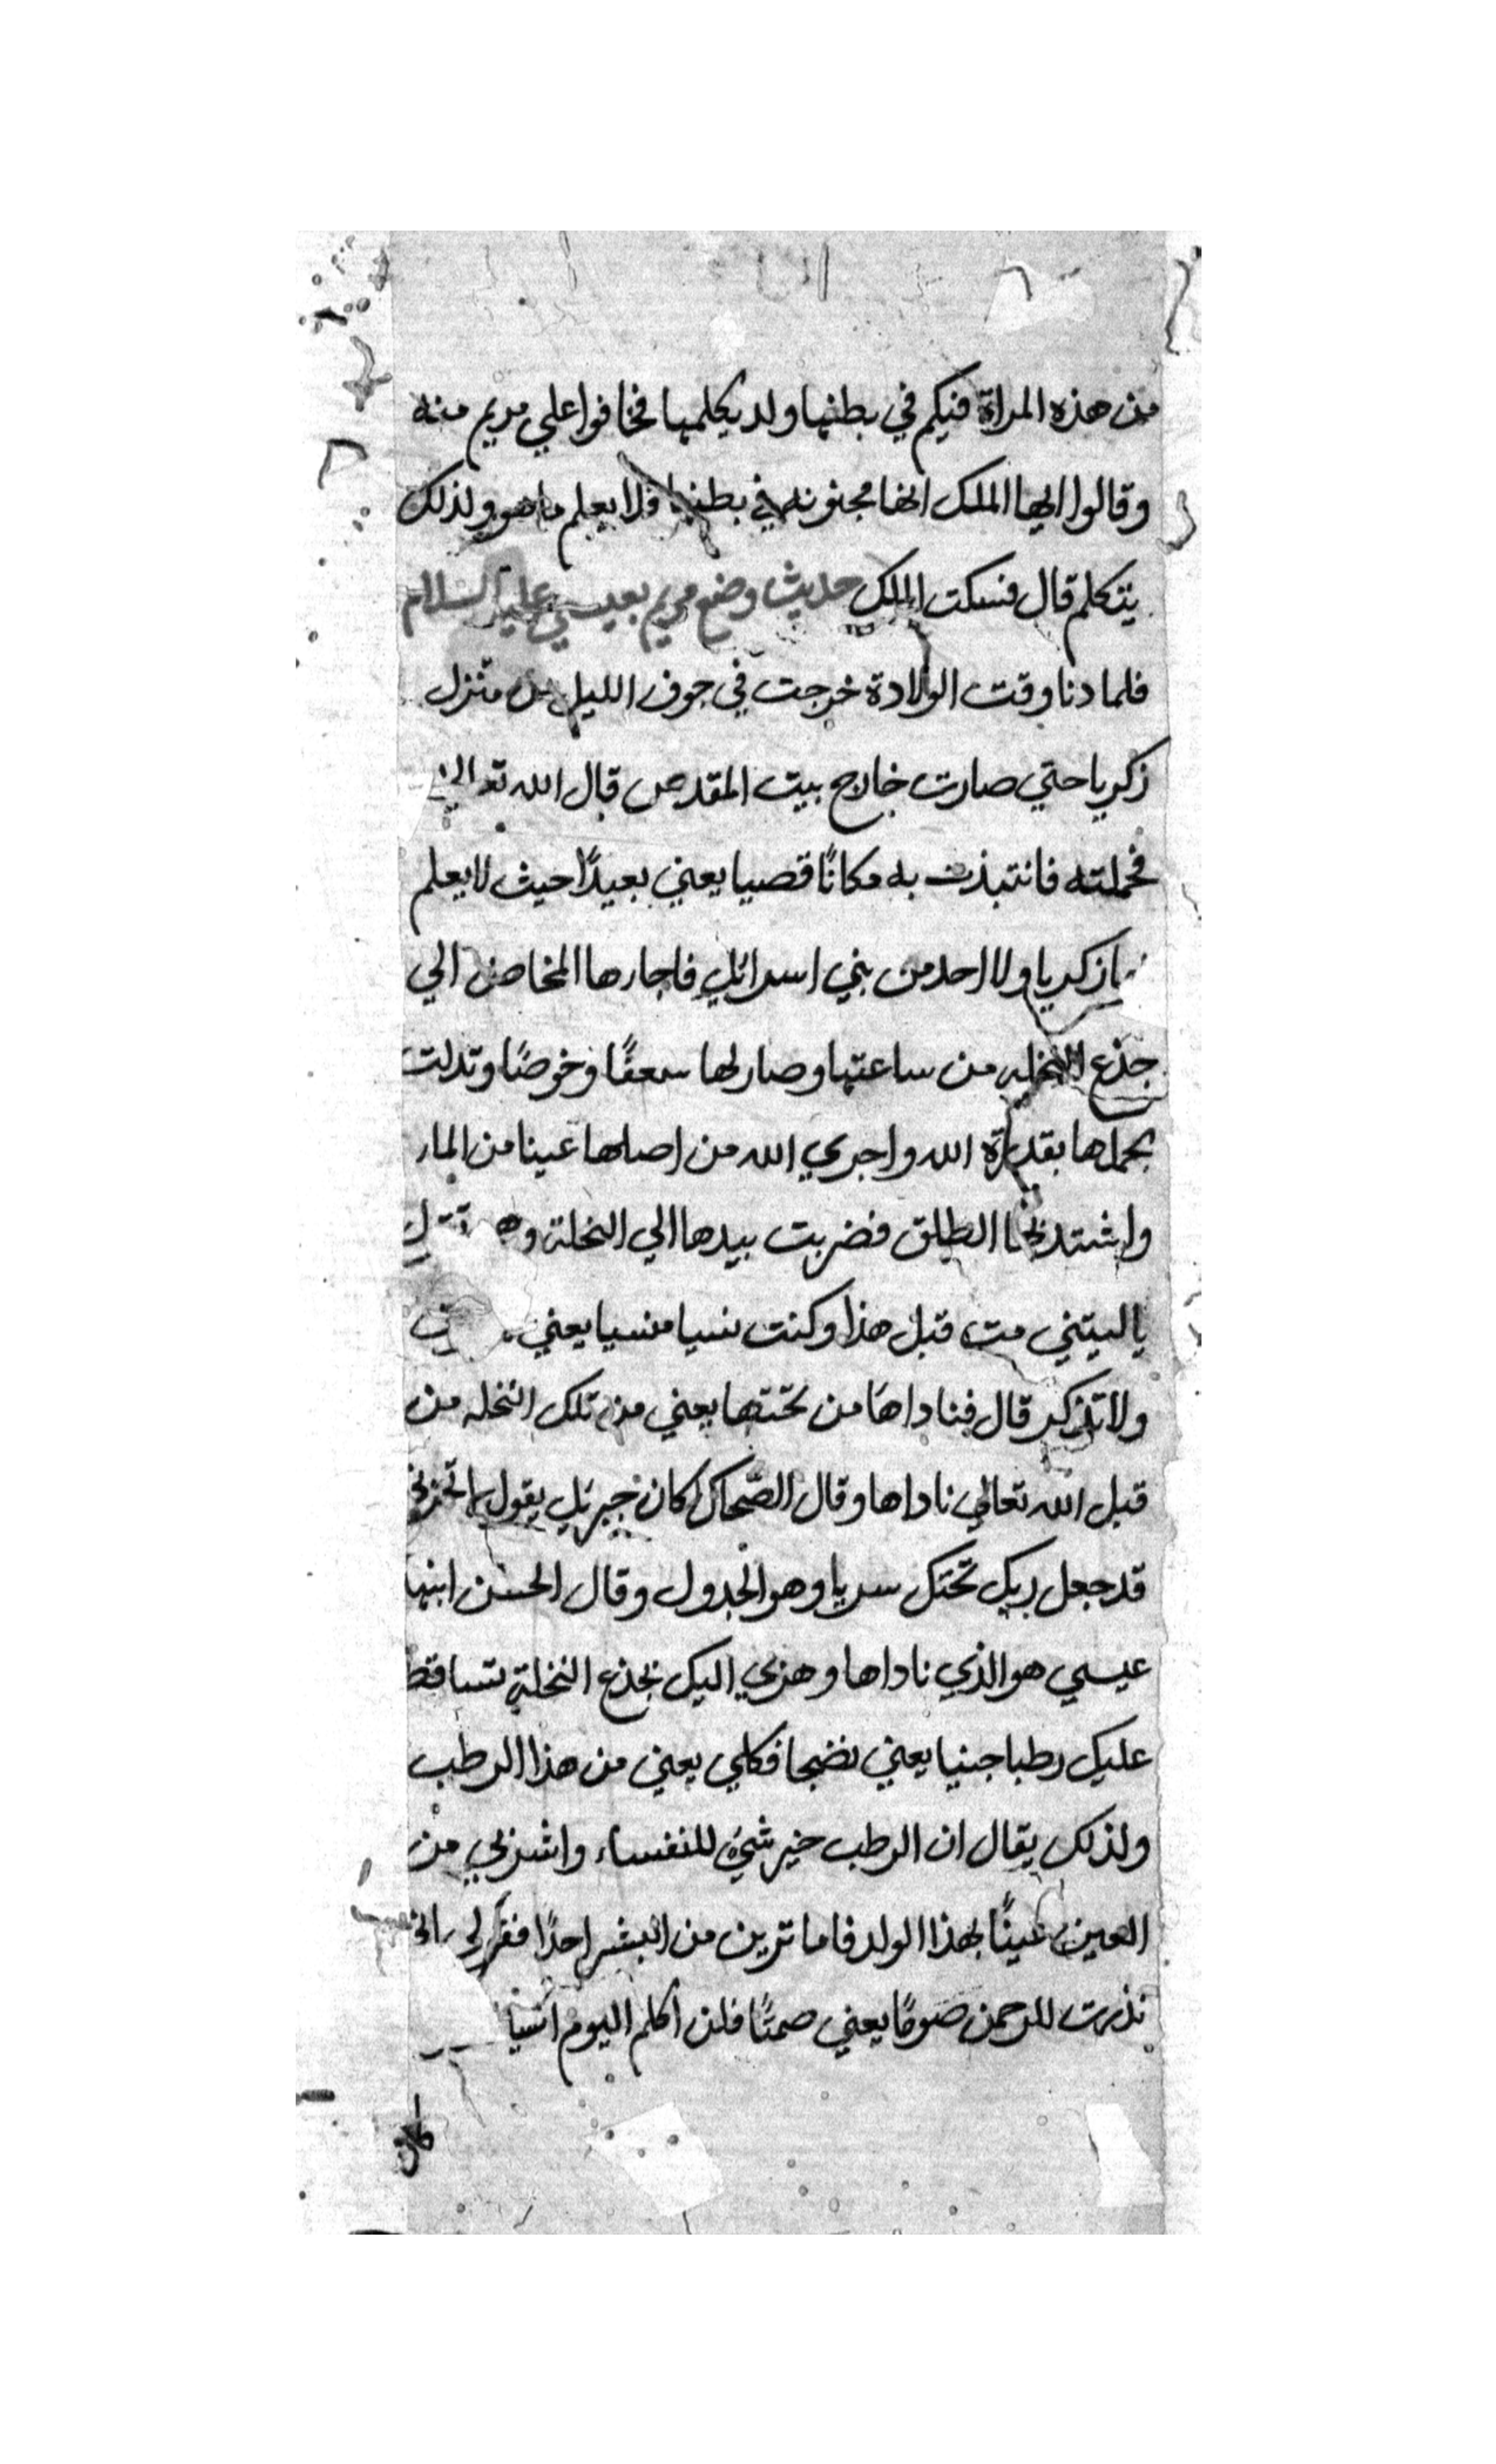 من هذه المراة فيكم في بطنها ولد يكلمها فخافوا علي مريم منه
وقالوا ايها الملك انها مجنونه في بطنها فلا يعلم ما هو ولذلك
يتكلم قال فسكت الملك حديث وضع مريم بعيسي عليه السلام
فلما دنا وقت الولادة خرجت في جوف الليل من منزل
زكريا حتي صارت خارج بيت المقدس قال الله تعالي
فحملته فانتبذت به مكانًا قصيا يعني بعيدًا حيث لا يعلم
زكريا ولا احد من بني اسرائيل فاجارها المخاض الي
جذع النخله من ساعتها وصار لها سعفًا وخوصًا وتدلت
بحملها بقدرة الله واجري الله من اصلها عينا من المار
واشتد بها الطلق فضربت بيدها الي النخلة
ياليتني مت قبل هذا وكنت نسيا منسيا يعني
ولا تذكر قال فناداها من تحتها يعني من تلك النخله من
قبل الله تعالي ناداها وقال الضحاك كان جبريل يقول تحزني
قد جعل ربك تحتك سريا وهو الجدول وقال الحسن ابنها
عيسي هو الذي ناداها وهزي اليك بجذع النخلة تساقط
عليك رطبا جنيا يعني نضجا فكلي يعني من هذا الرطب
ولذلك يقال ان الرطب خير شيء للنفساء واشربي من
العين عينًا بهذا الولد فاما ترين من البشر احدًا فقولي اني
نذرت للرحمن صومًا يعني صمتًا فلن اكلم اليوم انسيا